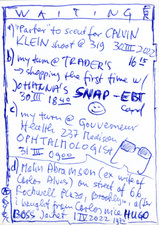 WAITING
a) "Parter" to scout for CALVIN
KLEIN shoot @ 319 30 III 2022
b) my turn @ TRADER'S 16 15
→ shopping the first time w/
JOHANNA'S SNAP-EBT
30 III 1840 card
c) my turn @ Gouverneur
Health 237 Madison
OPHTALMOLOGIST
31 III 0900
d) Malin Abramson (ex wife of
Carlos Alves) on street of 66
Rockwell Place, Brooklyn.
I bought from Carlos nice HUGO
BOSS Jacket 1 IV 2022